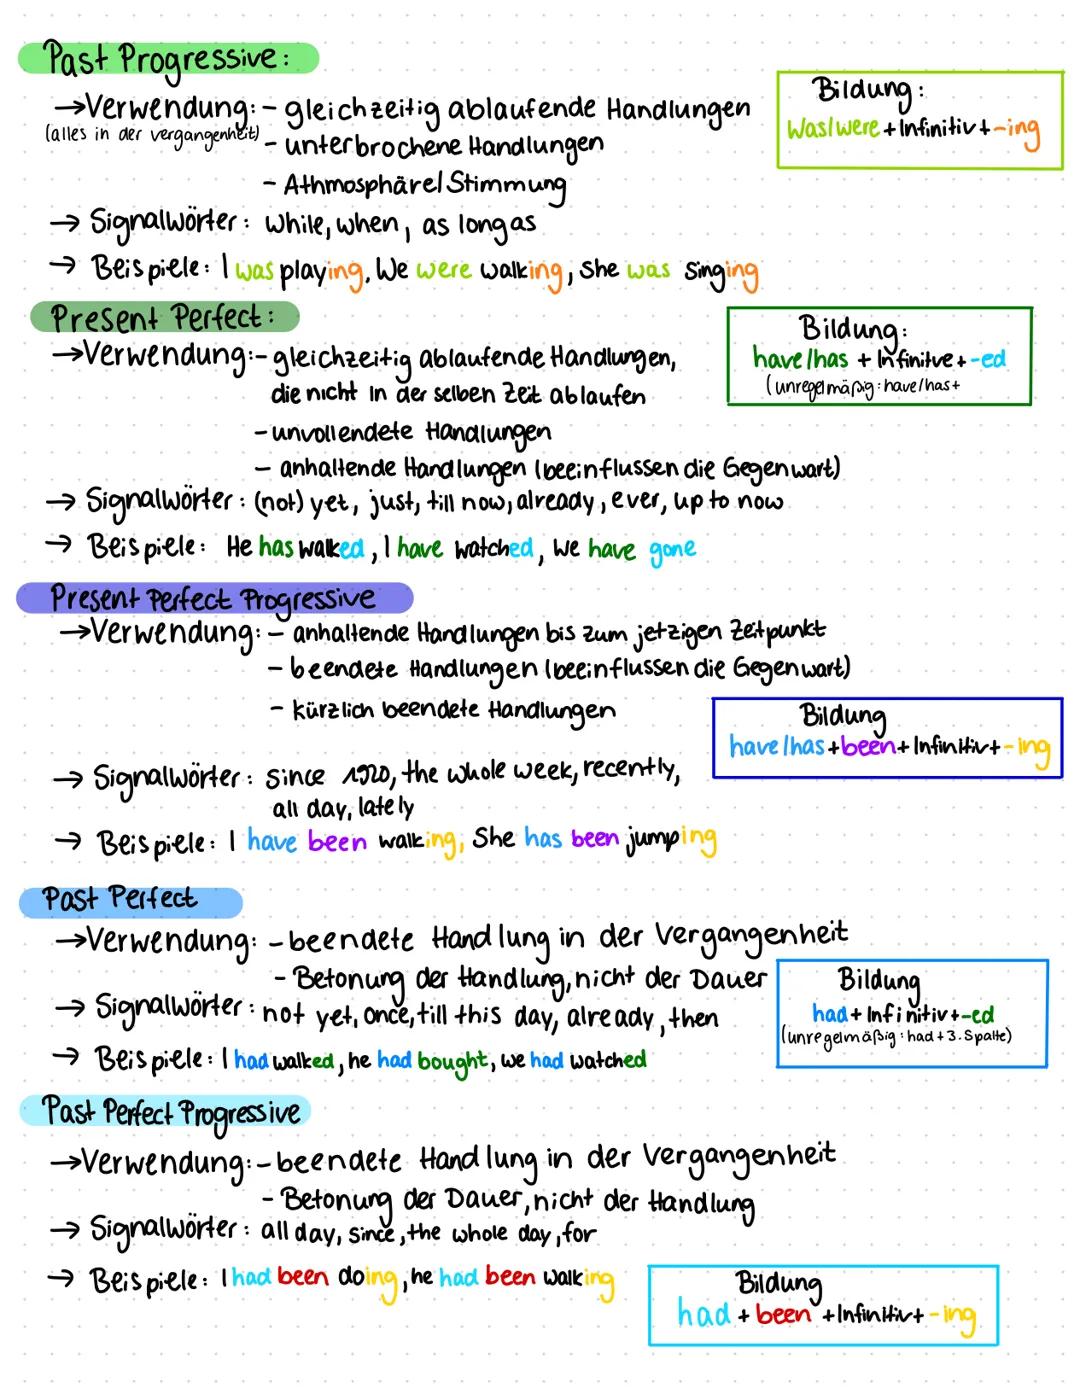 Past Progressive:
→Verwendung: - gleichzeitig ablaufende Handlungen
(alles in der vergangenheit)
- unterbrochene Handlungen
- Athmosphäre/Stimmung
→ Signalwörter: While, when, as long as
→ Beispiele: I was playing, We were walking, She was singing
Bildung:
Was/were + Infinitiv + -ing
Present Perfect:
→Verwendung: - gleichzeitig ablaufende Handlungen,
die nicht in der selben Zeit ablaufen
- unvollendete Handlungen
- anhaltende Handlungen (beeinflussen die Gegenwart)
→ Signalwörter: (not) yet, just, till now, already, ever, up to now
→ Beispiele: He has walked, I have watched, We have gone
Bildung:
have/has + Infinitve + -ed
(unregelmäßig: have/has +
Present Perfect Progressive
→Verwendung: - anhaltende Handlungen bis zum jetzigen Zeitpunkt
- beendete Handlungen (beeinflussen die Gegenwart)
- kürzlich beendete Handlungen
→ Signalwörter: since 1920, the whole week, recently,
all day, lately
→ Beispiele: I have been walking, She has been jumping
Bildung
have/has + been + Infinitiv + -ing
Past Perfect
→Verwendung: - beendete Handlung in der Vergangenheit
- Betonung der Handlung, nicht der Dauer
→ Signalwörter: not yet, once, till this day, already, then
→ Beispiele: I had walked, he had bought, we had watched
Bildung
had + Infinitiv + -ed
(unregelmäßig: had + 3. Spalte)
Past Perfect Progressive
→Verwendung: - beendete Handlung in der Vergangenheit
- Betonung der Dauer, nicht der Handlung
→ Signalwörter: all day, since, the whole day, for
→ Beispiele: I had been doing, he had been walking
Bildung
had + been + Infinitiv + -ing